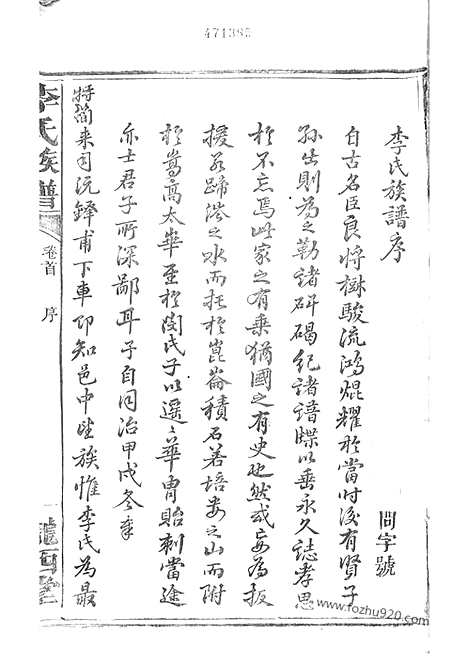 471385
李氏族譜序
問字號
自古名臣良將樹駿流鴻焜耀於當時後有賢子
孫出則為之勒諸碑碣紀諸譜牒以垂永久誌孝思
於不忘焉此家之有乘猶國之有史也然或妄為扳
援若蹄涔之水而托於崑崙積石若培婁之山而附
於嵩高太華至於閔氏子以遙遙華胄貽刺當途
亦士君子所深鄙耳予自同治甲戌冬奉
特簡來司沅鐸甫下車即知邑中望族惟李氏為最
李氏族譜
卷首 序
一
www.fozhu920.com